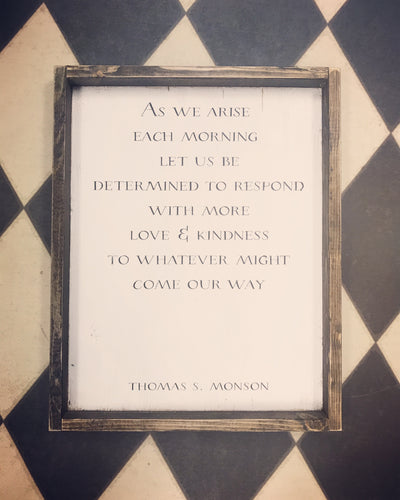 AS WE ARISE
EACH MORNING
LET US BE
DETERMINED TO RESPOND
WITH MORE
LOVE & KINDNESS
TO WHATEVER MIGHT
COME OUR WAY
THOMAS S. MONSON